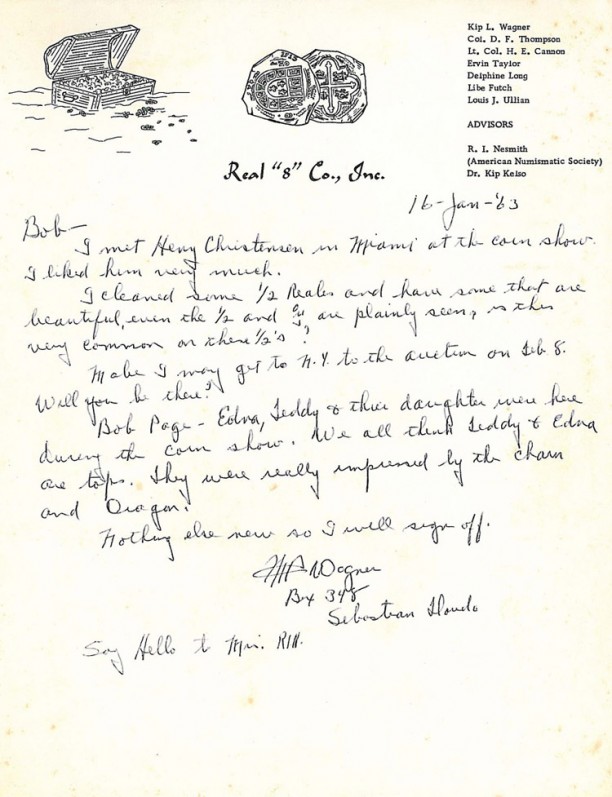 Kip L. Wagner
Col. D. F. Thompson
Lt. Col. H. E. Cannon
Ervin Taylor
Delphine Long
Libe Futch
Louis J. Ullian
ADVISORS
R. I. Nesmith
(American Numismatic Society)
Dr. Kip Kelso
Real "8" Co., Inc.
16-Jan-'63
Bob-
I met Henry Christensen in Miami at the coin show.
I liked him very much.
I cleaned some 1/2 Reales and have some that are
beautiful, even the 1/2 and are plainly seen, is this
very common on these 1/2's?
Mabe I may get to N.Y. to the auction on Feb. 8.
Will you be there?
Bob Page - Edna, Teddy & thier daughter were here
during the coin show. We all think Teddy & Edna
are tops. They were really impressed by the chain
and Dragon.
Nothing else new so I will sign off.
Wagner
Box 348
Sebastian Florida
Say Hello to Mrs. RIN.